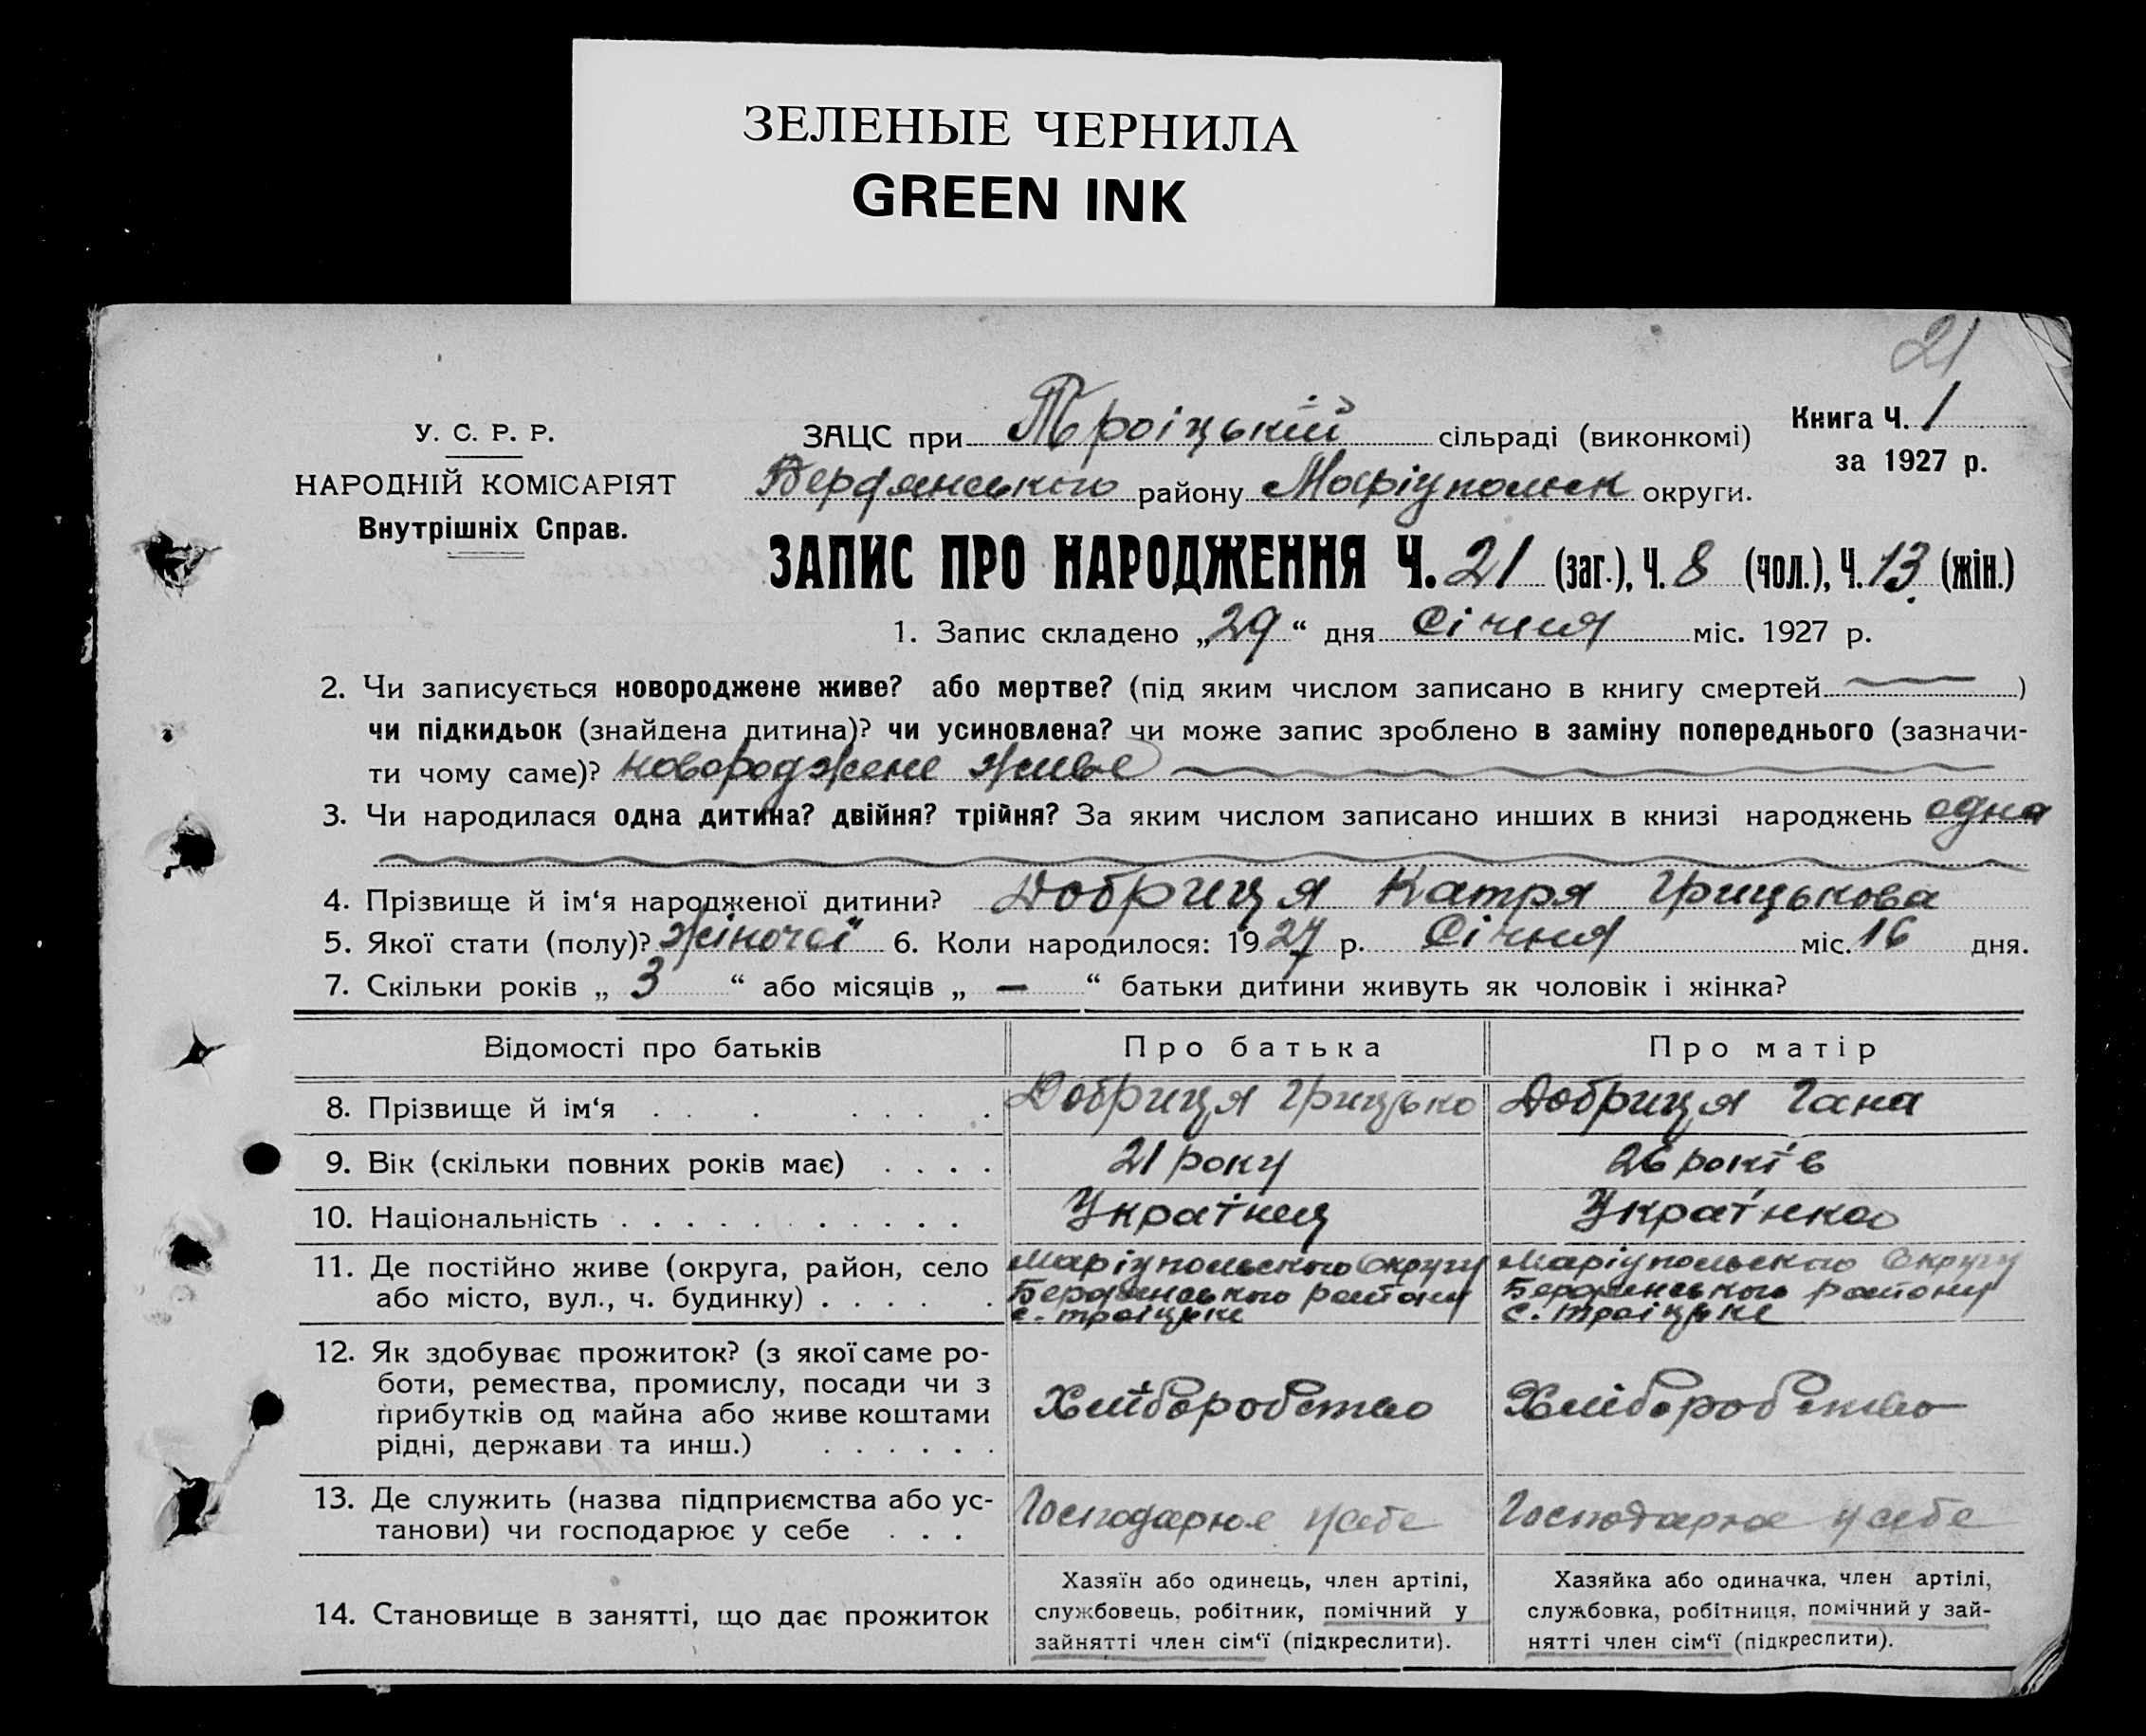 ЗЕЛЕНЫЕ ЧЕРНИЛА
GREEN INK
21
У. С. Р. Р.
НАРОДНІЙ КОМІСАРІЯТ
Внутрішніх Справ.
ЗАЦС при Троіцькій сільраді (виконкомі)
Книга Ч. 1
за 1927 р.
Бердянського району Маріупольск округи.
ЗАПИС ПРО НАРОДЖЕННЯ Ч. 21 (заг.), Ч. 8 (чол.), Ч. 13 (жін.)
1. Запис складено „29“ дня Січня міс. 1927 р.
2. Чи записується новороджене живе? або мертве? (під яким числом записано в книгу смертей )
чи підкидьок (знайдена дитина)? чи усиновлена? чи може запис зроблено в заміну попереднього (зазначи-
ти чому саме)? новороджене живе
3. Чи народилася одна дитина? двійня? трійня? За яким числом записано инших в книзі народжень одна
4. Прізвище й ім‘я народженої дитини? Добриця Катря Грицькова
5. Якої стати (полу)? жіночої 6. Коли народилося: 1927 р. Січня міс. 16 дня.
7. Скільки років „ 3 “ або місяців „ — “ батьки дитини живуть як чоловік і жінка?
Відомості про батьків Про батька Про матір
8. Прізвище й ім‘я . . . . . . . . Добриця Грицько Добриця Гана
9. Вік (скільки повних років має) . . . . 21 року 26 років
10. Національність . . . . . . . . . . . Українец Українка
11. Де постійно живе (округа, район, село
або місто, вул., ч. будинку) . . . . . .
Маріупольского Округу
Бердянського району
с. Троіцьке
Маріупольского Округу
Бердянського району
с. Троіцьке
12. Як здобуває прожиток? (з якої саме ро-
боти, ремества, промислу, посади чи з
прибутків од майна або живе коштами
рідні, держави та инш.) . . . . . .
Хліборобство
Хліборобство
13. Де служить (назва підприємства або ус-
танови) чи господарює у себе . . .
Господарює у себе
Господарює у себе
14. Становище в занятті, що дає прожиток
Хазяїн або одинець, член артілі,
службовець, робітник, помічний у
зайнятті член сім‘ї (підкреслити).
Хазяйка або одиначка, член артілі,
службовка, робітниця, помічний у зай-
нятті член сім‘ї (підкреслити).